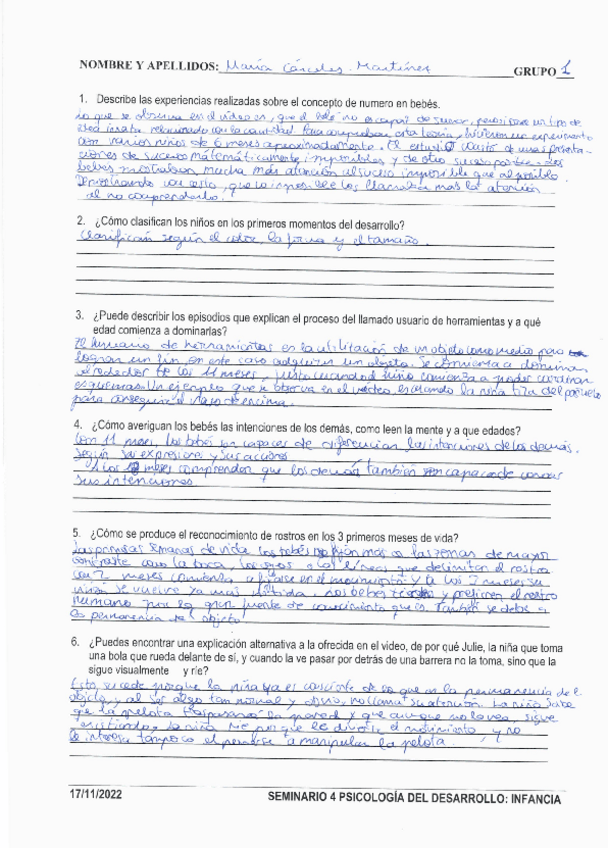 NOMBRE Y APELLIDOS: María Cánceles Martínez GRUPO 1
1. Describe las experiencias realizadas sobre el concepto de numero en bebés.
Lo que se observa en el video es, que el bebé no es capaz de sumar, pero si tiene un tipo de
idea innata relacionado con la cantidad. Para comprobar esta teoría, hicieron un experimento
con varios niños de 6 meses aproximadamente. El estudio consta de unas presenta-
ciones de sucesos matemáticamente imposibles y de otro suceso posible. Los
bebés mostraban mucha más atención al suceso imposible que al posible
Demostrando con esto, que lo imposible les llamaba más la atención
al no comprenderlo.
2. ¿Cómo clasifican los niños en los primeros momentos del desarrollo?
Clasifican según el color, la forma y el tamaño.
3. ¿Puede describir los episodios que explican el proceso del llamado usuario de herramientas y a qué
edad comienza a dominarlas?
El usuario de herramientas es la utilización de un objeto como medio para
lograr un fin, en este caso adquirir un objeto. Se comienza a dominar
alrededor de los 11 meses, justo cuando el niño comienza a poder coordinar
esquemas. Un ejemplo que se observa en el vídeo es cuando la niña tira del pañuelo
para conseguir el vaso de encima.
4. ¿Cómo averiguan los bebés las intenciones de los demás, como leen la mente y a que edades?
Con 11 meses, los bebés son capaces de diferenciar las intenciones de los demás.
Según sus expresiones y sus acciones
A los meses comprenden que los demás también son capaces de conocer
sus intenciones
5. ¿Cómo se produce el reconocimiento de rostros en los 3 primeros meses de vida?
Las primeras semanas de vida los bebés se fijan más en las zonas de mayor
contraste como la boca, los ojos o las líneas que delimitan el rostro
con 2 meses comienza a fijarse en el movimiento y a los 3 meses su
visión se vuelve ya más nítida. Los bebés prefieren el rostro
humano por la gran fuente de conocimiento que es. También se debe a
la permanencia de objeto.
6. ¿Puedes encontrar una explicación alternativa a la ofrecida en el video, de por qué Julie, la niña que toma
una bola que rueda delante de sí, y cuando la ve pasar por detrás de una barrera no la toma, sino que la
sigue visualmente y ríe?
Esto, sucede porque la niña ya es consciente de lo que es la permanencia del
objeto, y al ser algo tan normal y obvio, no llama su atención. La niña sabe
que la pelota traspasará la pared y que aunque no la vea, sigue
existiendo. La niña ríe porque le divierte el movimiento, y no
le interesa tampoco el pararse a manipular la pelota.
17/11/2022 SEMINARIO 4 PSICOLOGÍA DEL DESARROLLO: INFANCIA